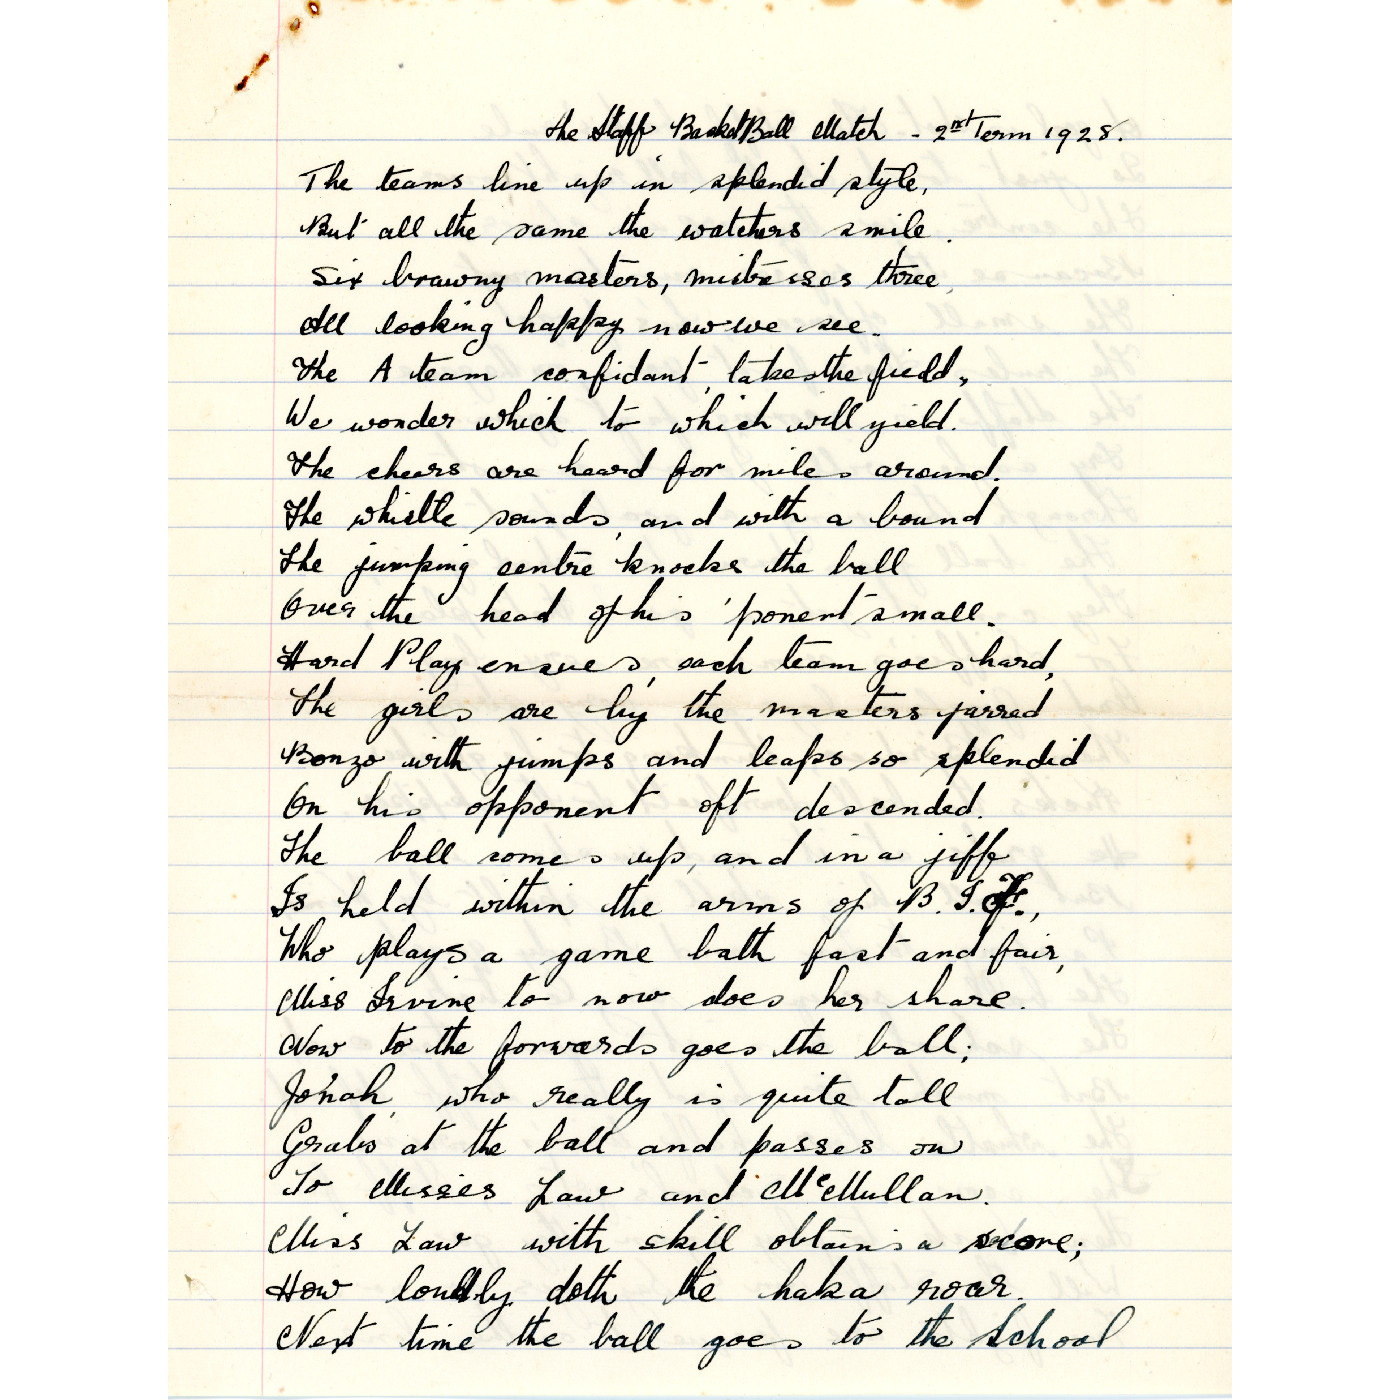 The Staff BasketBall Match - 2nd Term 1928.
The teams line up in splendid style,
But all the same the watchers smile.
Six brawny masters, mistresses three,
All looking happy now we see.
The A team confidant, takes the field,
We wonder which to which will yield.
The cheers are heard for miles around.
The whistle sounds, and with a bound
The jumping centre knocks the ball
Over the head of his 'ponent small.
Hard Play ensues, each team goes hard,
The girls are by the masters jarred
Bonzo with jumps and leaps so splendid
On his opponent oft descended.
The ball comes up, and in a jiff
Is held within the arms of B.I.F.,
Who plays a game both fast and fair,
Miss Irvine to now does her share.
Now to the forwards goes the ball;
Jonah, who really is quite tall
Grabs at the ball and passes on
To Misses Law and McMullan.
Miss Law with skill obtains a score;
How loudly doth the haka roar.
Next time the ball goes to the School